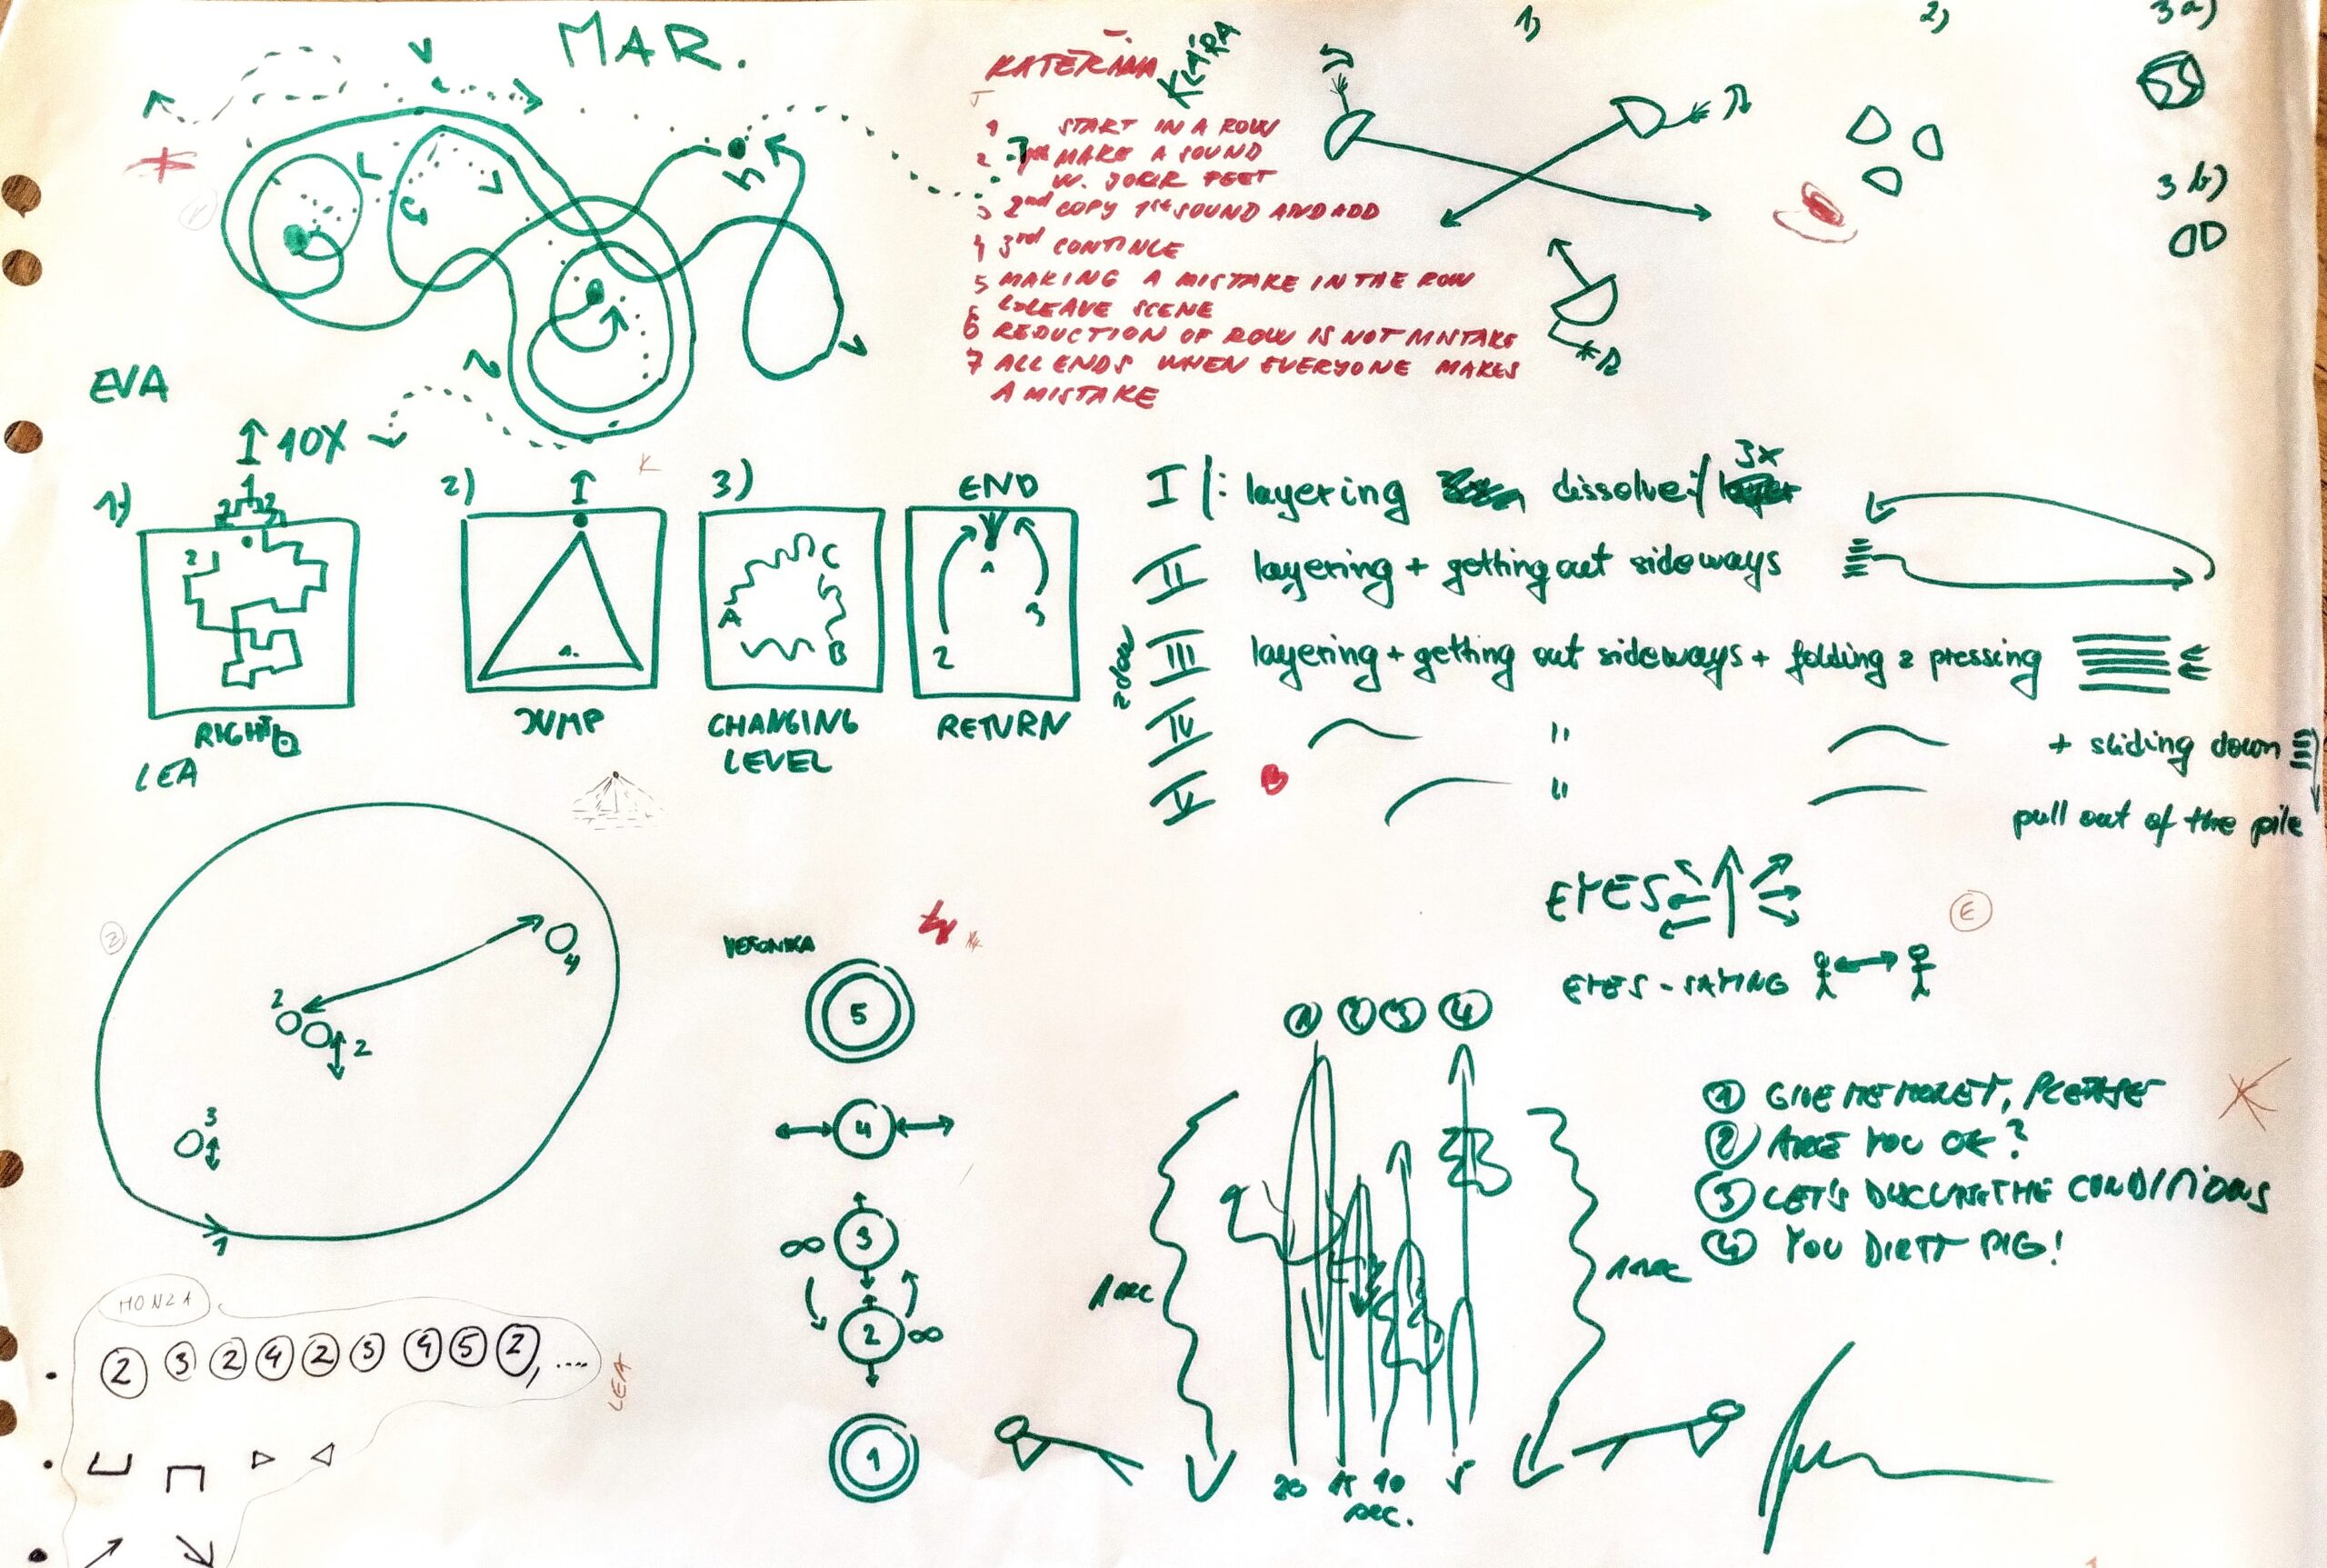 MAR.
KATEŘINA
KLÁRA
1)
2)
3a)
1 START IN A ROW
2 MAKE A SOUND
W. YOUR FEET
3 2nd COPY 1st SOUND AND ADD
4 3rd CONTINUE
5 MAKING A MISTAKE IN THE ROW
LEAVE SCENE
6 REDUCTION OF ROW IS NOT MISTAKE
7 ALL ENDS WHEN EVERYONE MAKES
A MISTAKE
3b)
EVA
10X
K
1)
2)
3)
END
1
2
2
A
B
C
1
2
3
RIGHT
JUMP
CHANGING
LEVEL
RETURN
I |: layering dissolve :| 3x
II layering + getting out sideways
III layering + getting out sideways + folding & pressing
IV " + sliding down
V " pull out of the pile
LEA
2
4
2
3
1
VERONIKA
5
4
∞ 3
2 ∞
1
EYES
EYES - SAYING
E
1 2 3 4
1 sec
1 sec
20 15 10 5
sec.
1 GIVE ME MONEY, PLEASE
2 ARE YOU OK?
3 LET'S THE CONDITIONS
4 YOU DIRTY PIG!
HONZA
2 3 2 4 2 3 4 5 2, ....
LEA